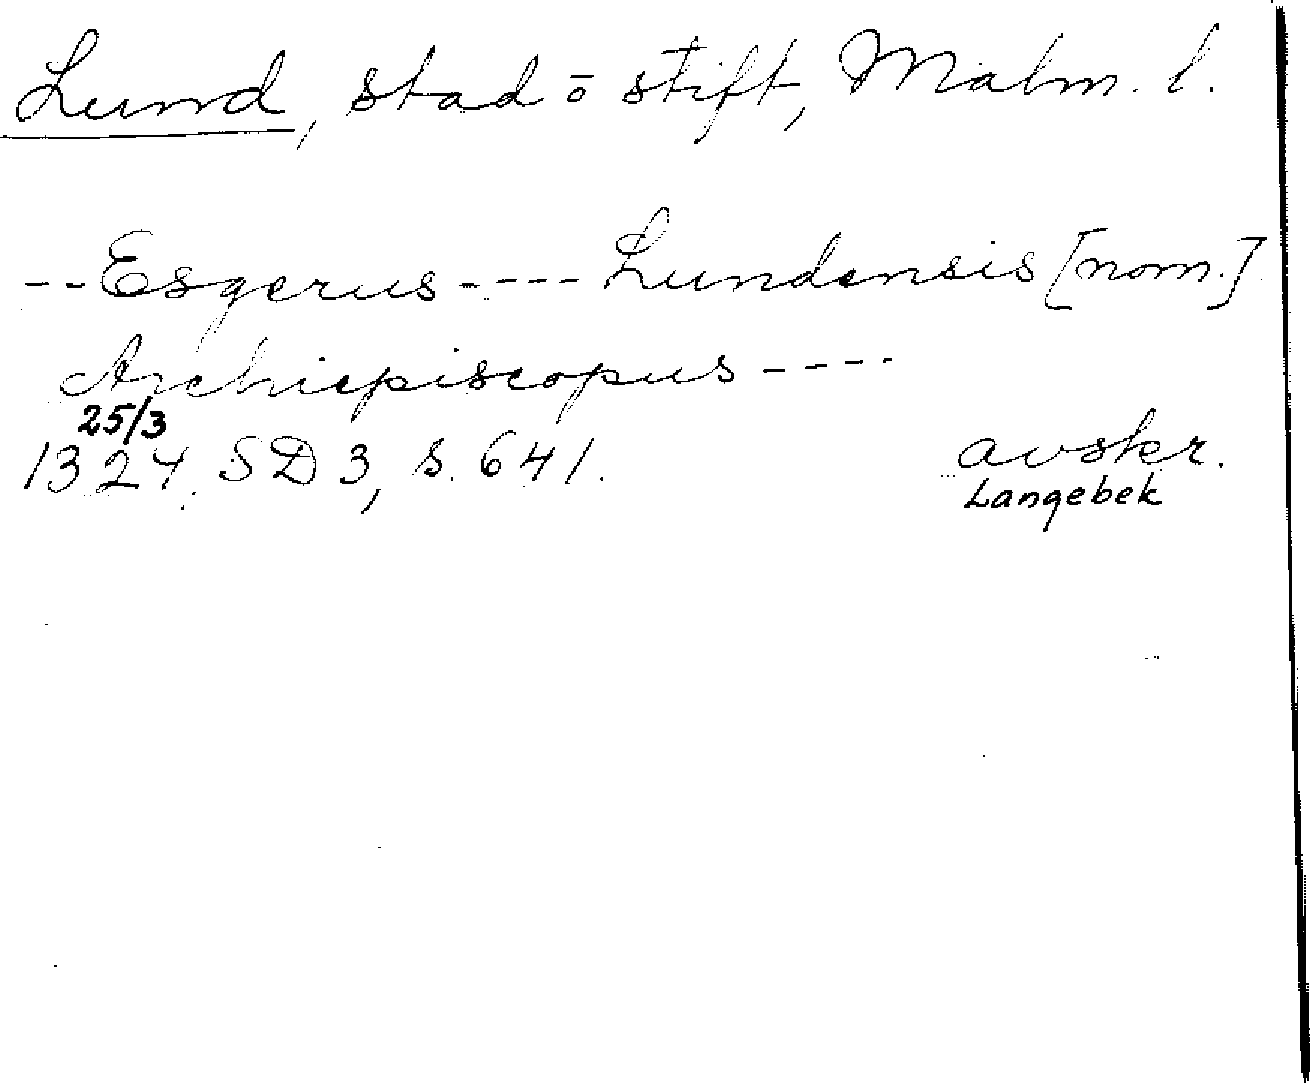 Lund, stad o stift, Malm. l.
--Esgerus---- Lundensis [nom.]
Archiepiscopus----
25/3
1324. SD 3, s. 641.
avskr.
Langebek